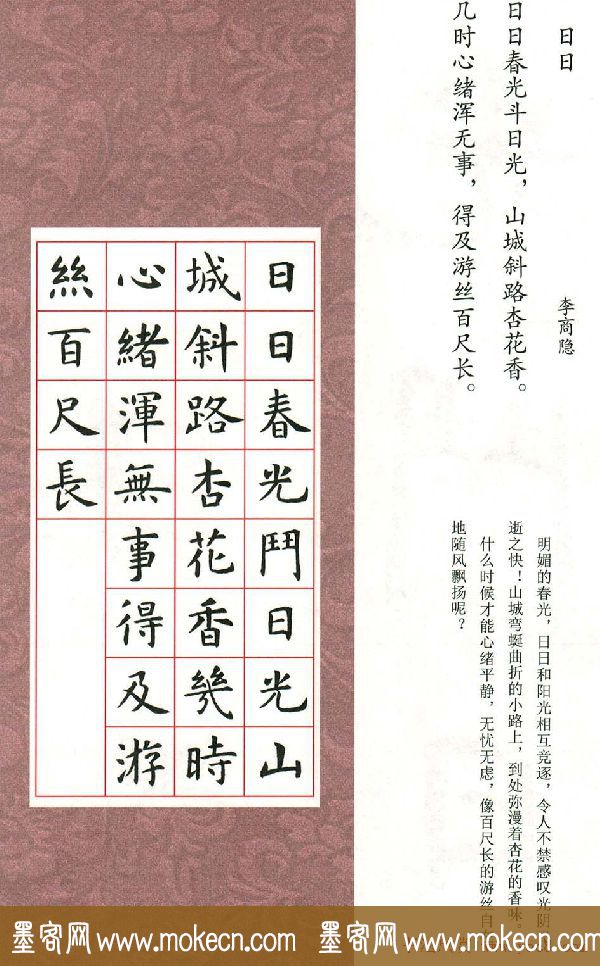 日日
李商隐
日日春光斗日光，山城斜路杏花香。
几时心绪浑无事，得及游丝百尺长。
明媚的春光，日日和阳光相互竞逐，令人不禁感叹光阴
逝之快！山城弯蜒曲折的小路上，到处弥漫着杏花的香味。
什么时候才能心绪平静，无忧无虑，像百尺长的游丝自
地随风飘扬呢？
日日春光鬥日光山
城斜路杏花香幾時
心緒渾無事得及游
絲百尺長
墨客网 www.mokecn.com 墨客网 www.mokecn.com